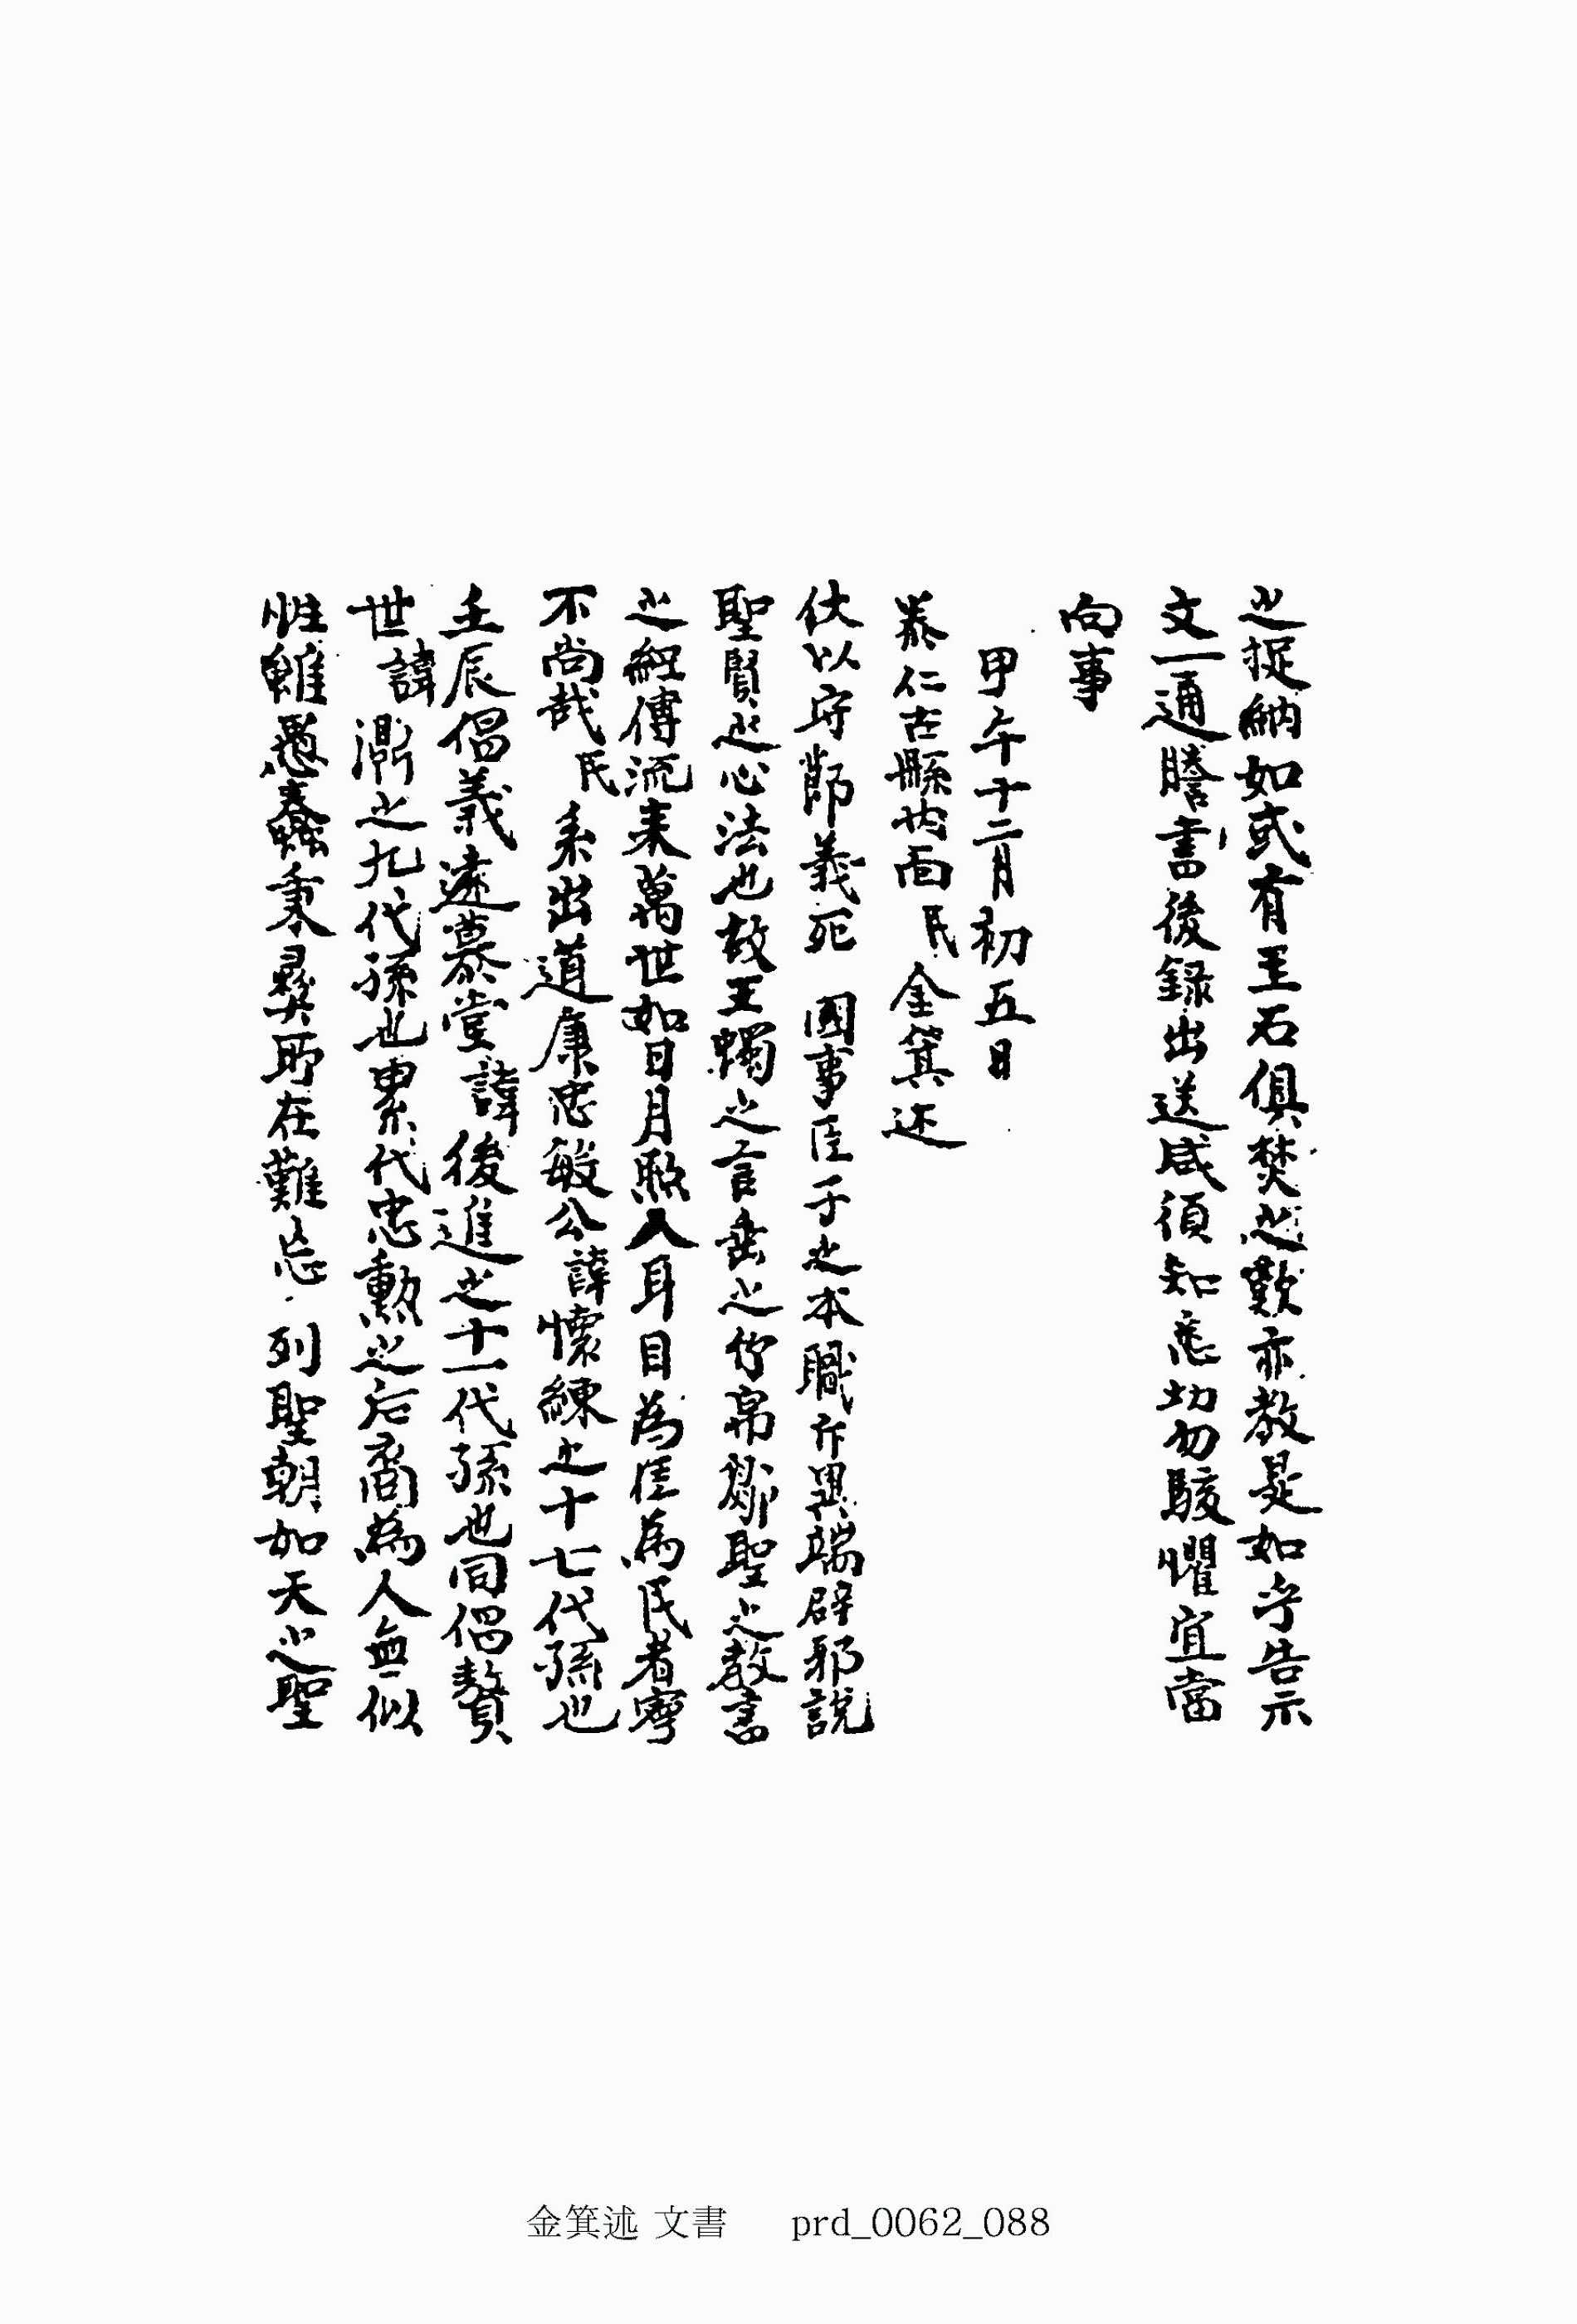 之捉納如或有玉石俱焚之歎亦教是如乎告示
文一通謄書後錄出送咸須知悉切勿駭懼宜當
向事
甲午十二月初五日
泰仁古縣內面民金箕述
伏以守節義死 國事臣子之本職斥異端辟邪說
聖賢之心法也故王蠋之言垂之竹帛鄒聖之教書
之經傳流來萬世如日月照人耳目為臣為民者寧
不尚哉民系出道康忠敏公諱懷練之十七代孫也
壬辰倡義遠慕堂諱後進之十一代孫也同倡贊
世諱灝之九代孫也累代忠勳之后裔為人無似
性雖愚蠢秉彛所在難忘 列聖朝如天之聖
金箕述 文書 prd_0062_088